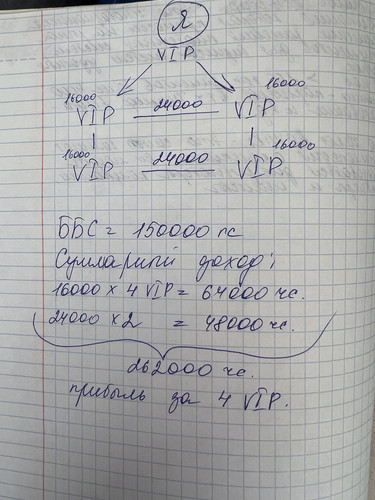 Я
VIP
16000 16000
VIP 24000 VIP
16000 16000
VIP 24000 VIP
ББС = 150000 пс
Суммарный доход:
16000 x 4 VIP = 64000 чс.
24000 x 2 = 48000 чс.
262000 чс.
прибыль за 4 VIP.